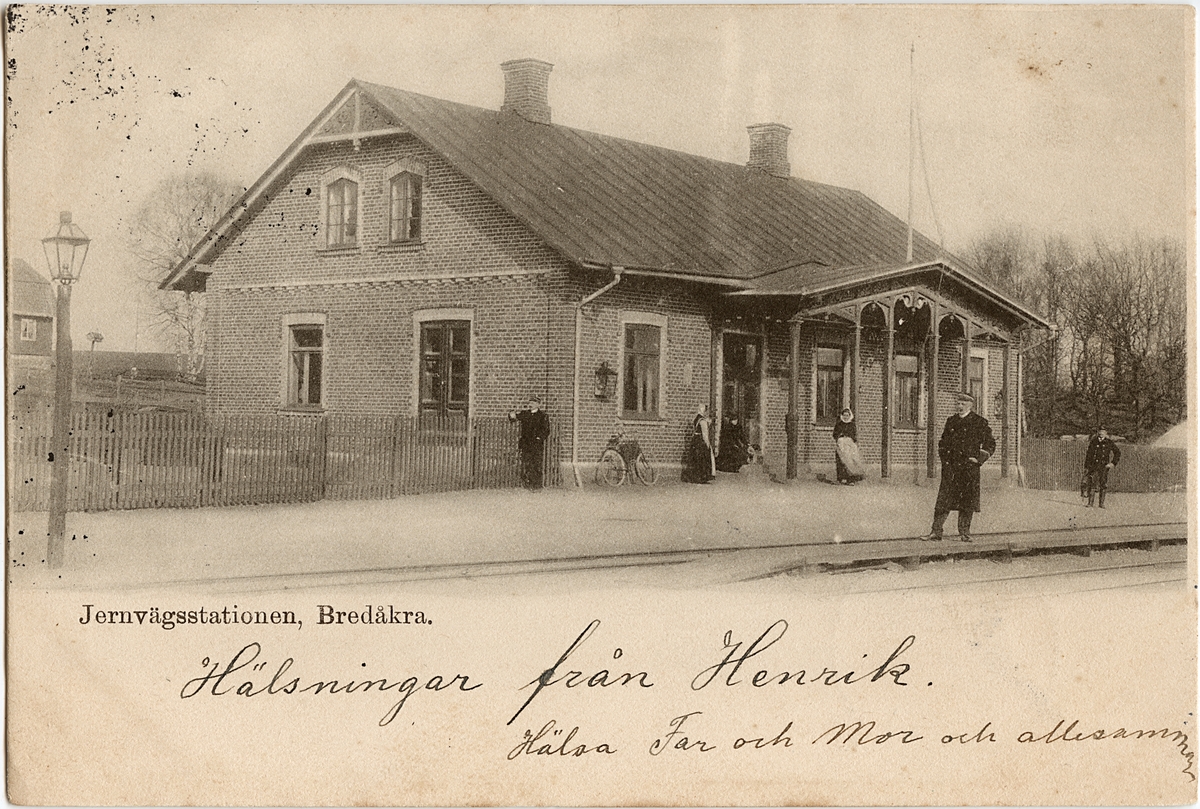 Jernvägsstationen, Bredåkra.
Hälsningar från Henrik.
Hälsa Far och Mor och allesamman